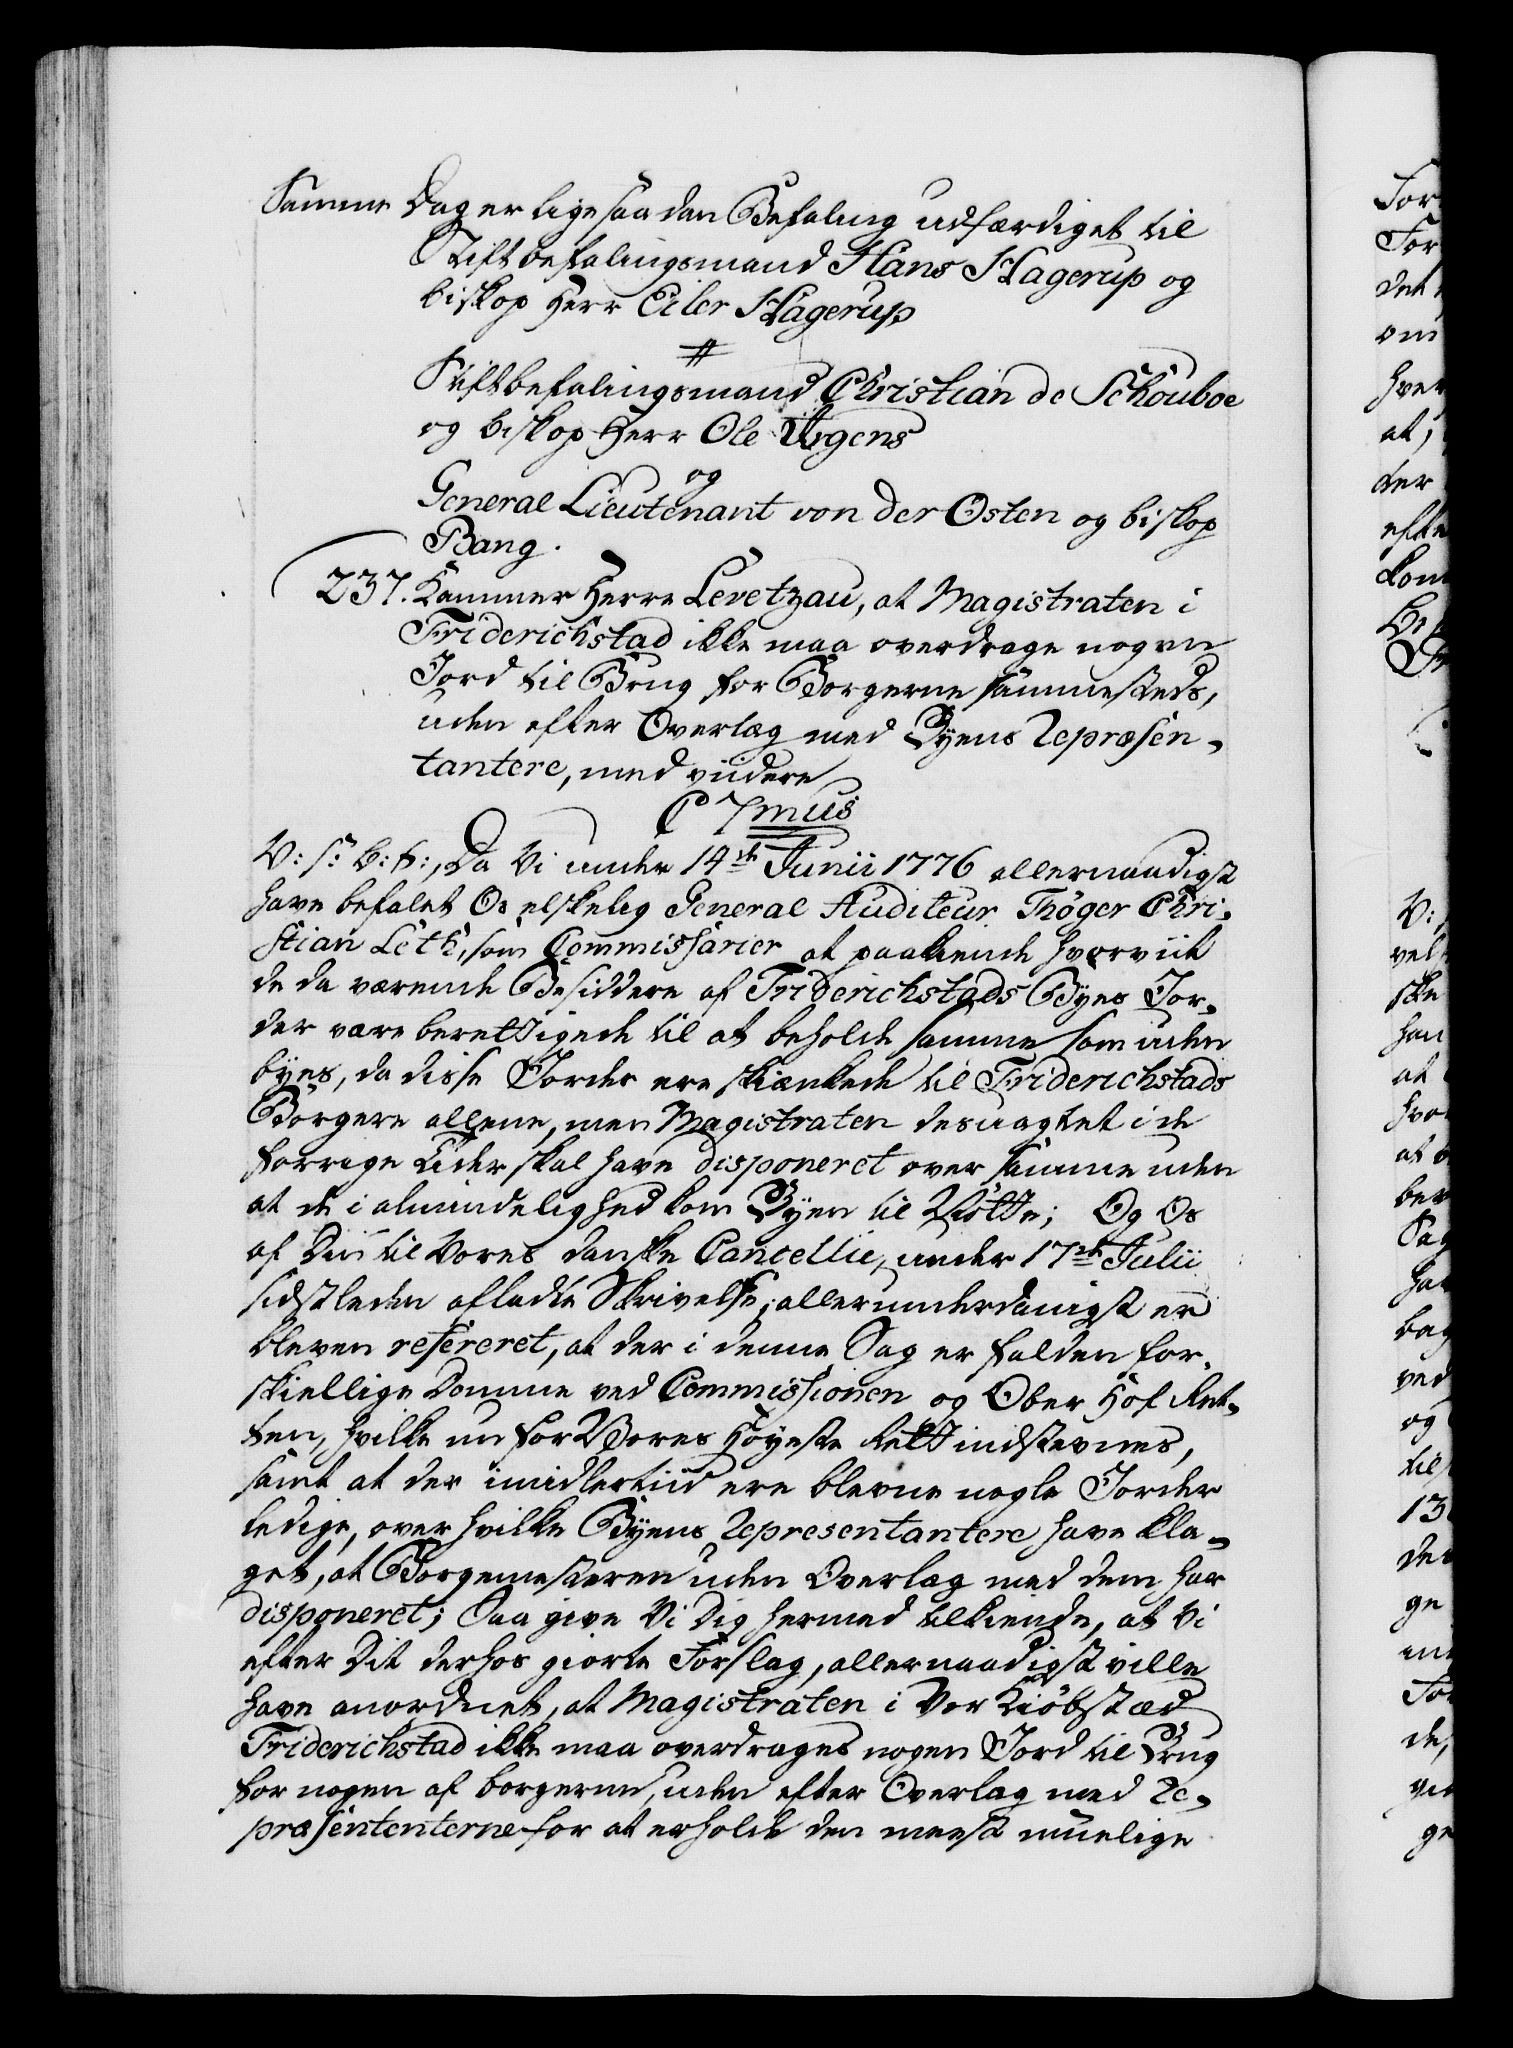 Samme Dag er lige saadan Befaling udfærdiget til
Stiftbefalingsmand Hans Hagerup og
biskop Herr Eiler Hagerup
#
Stiftbefalingsmand Christian de Schouboe
og biskop Herr Ole Irgens
og
General Lieutenant von der Osten og biskop
Bang.
237. Kammer Herre Levetzau, at Magistraten i
Friderichstad ikke maa overdrage nogen
Jord til Brug for Borgerne sammesteds,
uden efter Overlæg med Byens Repræsen-
tantere, med viidere
C 7mus
V: s: b: t:, Da Vi under 14de Junii 1776 allernaadigst
have befalet Os elskelig General Auditeur Thöger Chri-
stian Leth, som Commissarier at paakiende hvorviit
de da værende Besiddere af Friderichstads Byes Jor-
der vare berettigede til at beholde samme som uden
byes, da disse Jorder ere skiænkede til Friderichstads
Borgere allene, men Magistraten desuagtet i de
forrige Tider skal have disponeret over samme uden
at de i almindelighed kom Byen til Nötte; Og Os
af Din til Vores danske Cancellie, under 17de Julii
sidstleden afladte Skrivelse, allerunderdanigst er
bleven refereret, at der i denne Sag er falden for-
skiellige Domme ved Commissionen og Ober Hof Ret-
ten, hvilke nu for Vores Höyeste Rett indstevnes,
samt at der imidlertiid ere blevne nogle Jorder
ledige, over hvilke Byens Representantere have kla-
get, at Borgemesteren uden Overlæg med dem har
disponeret; Saa give Vi Dig hermed tilkiende, at Vi
efter Dit derhos giorte Forslag, allernaadigst ville
have anordnet, at Magistraten i Vor Kiöbstæd
Friderichstad ikke maa overdrages nogen Jord til Brug
for nogen af borgerne, uden efter Overlæg med Re-
præsententerne for at erholde den meest muelige